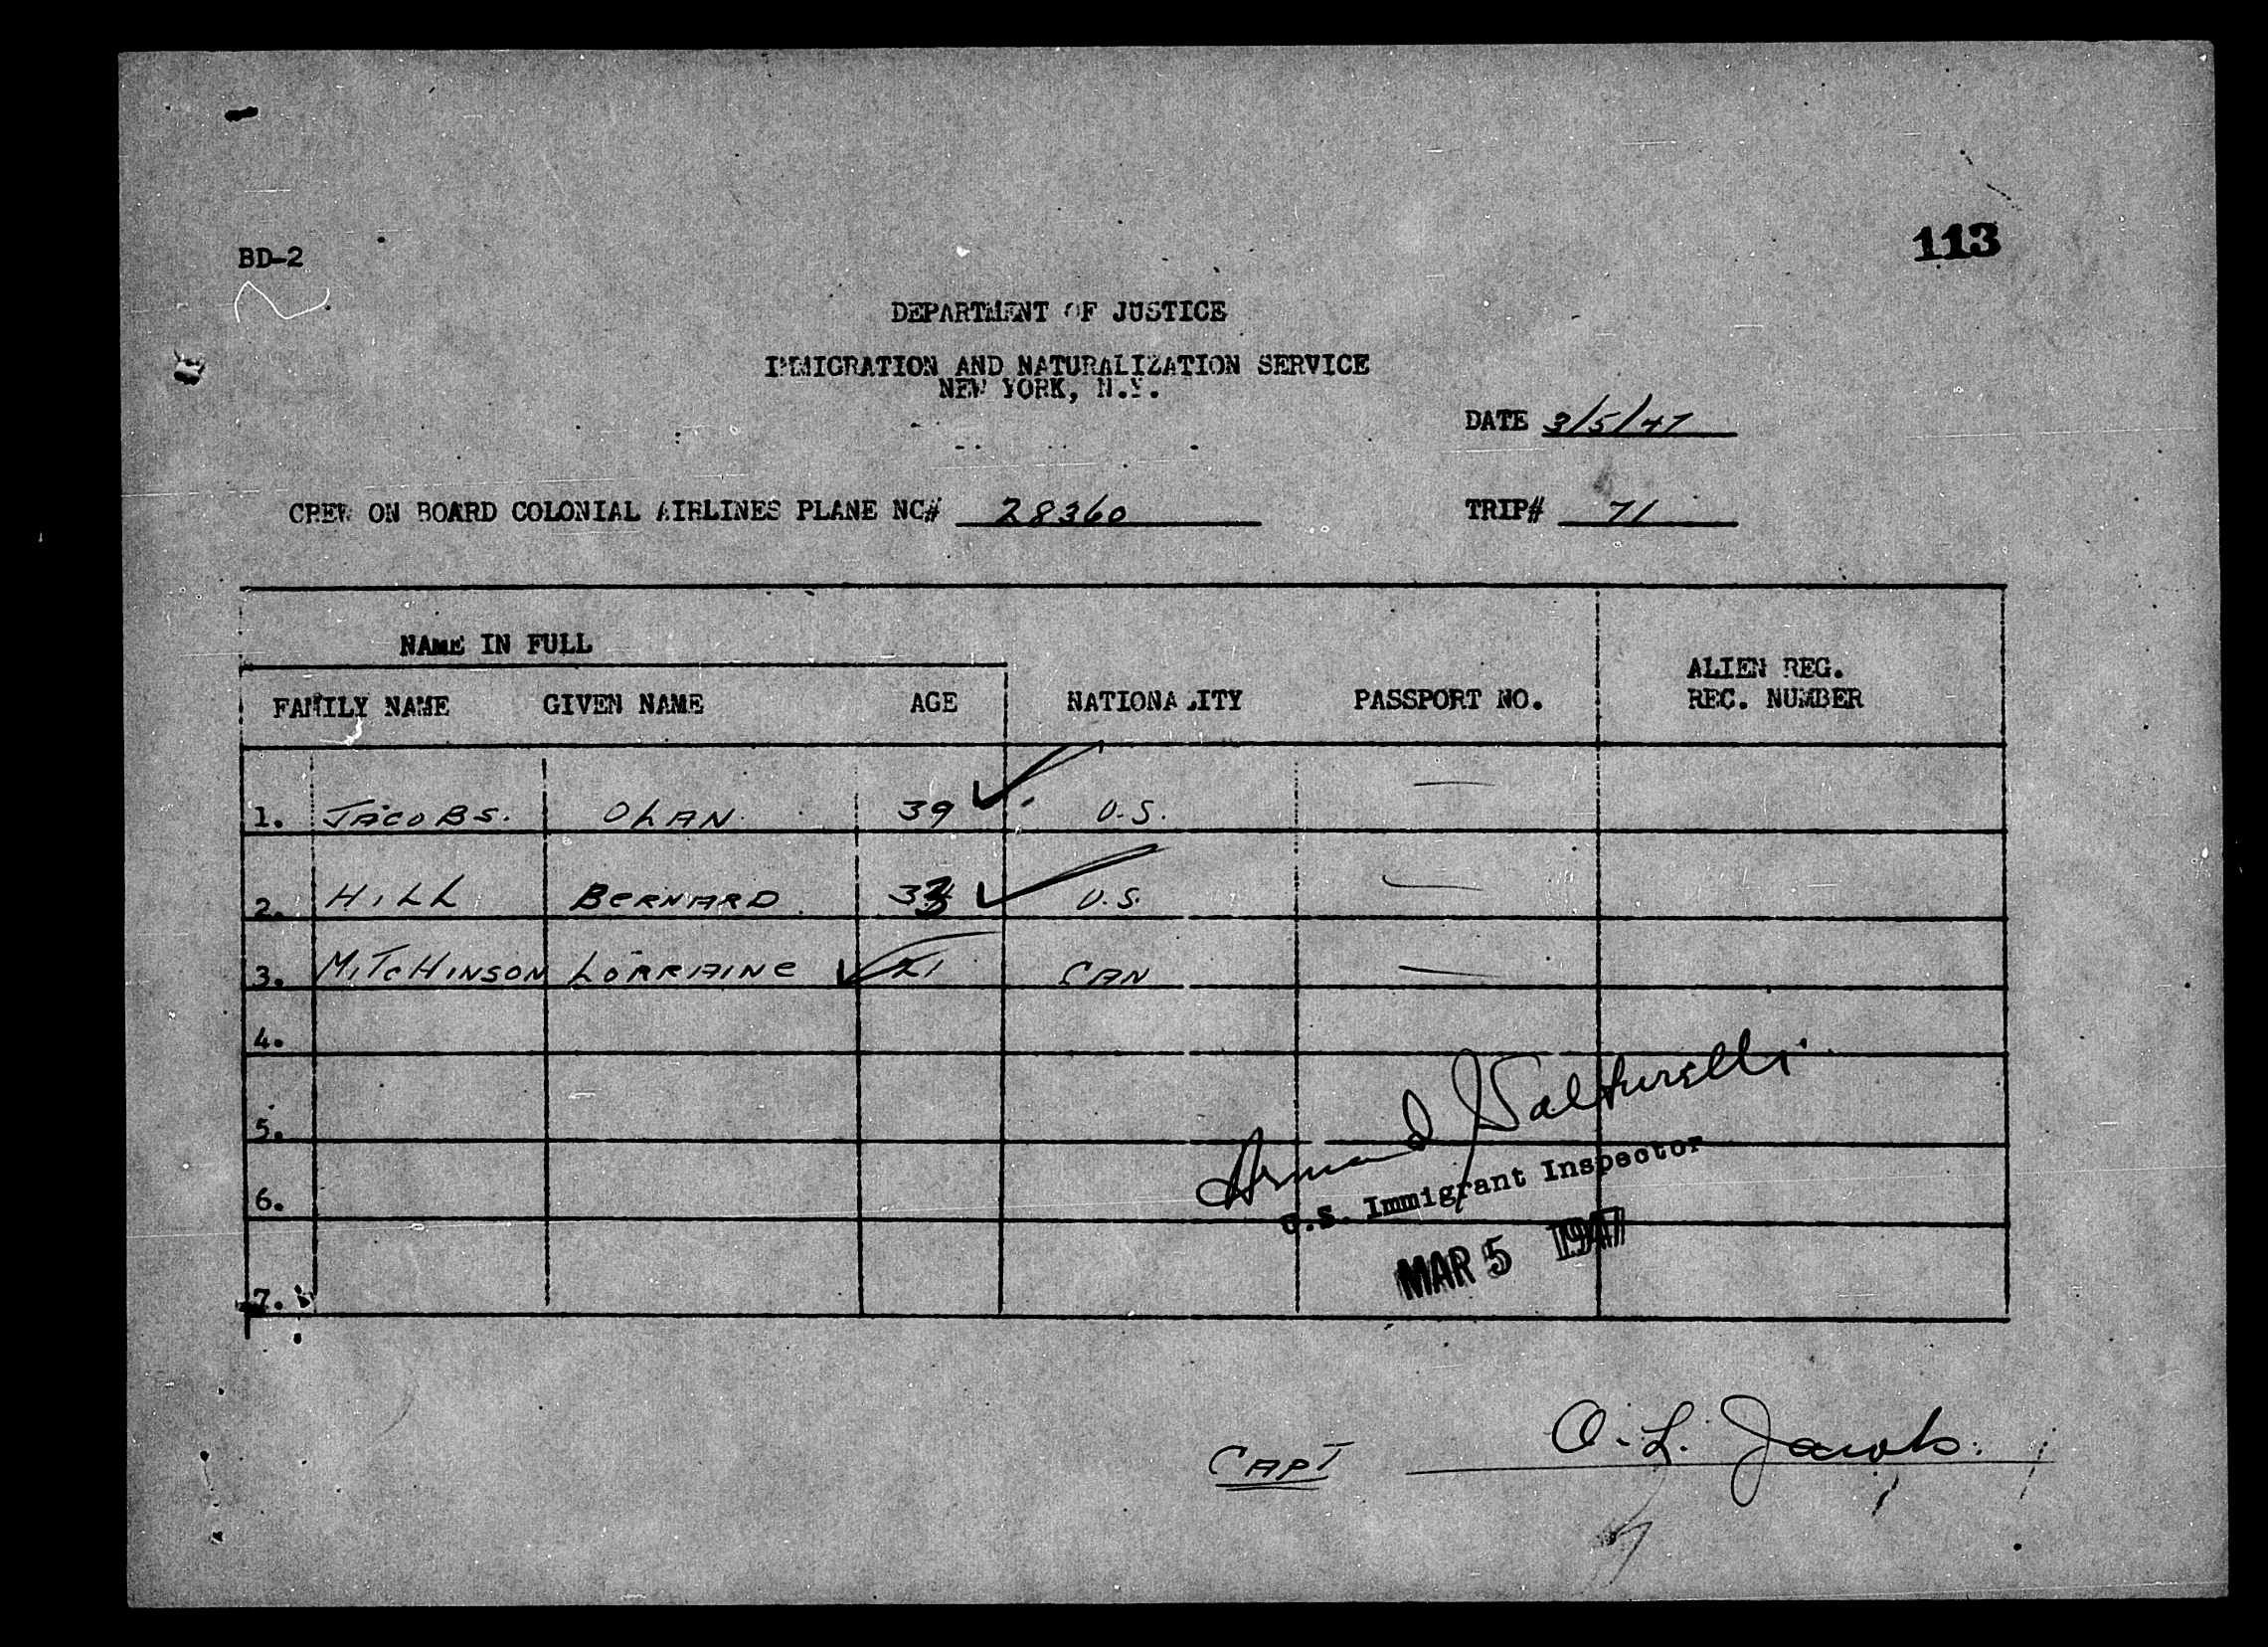 BD-2
113
DEPARTMENT OF JUSTICE
IMMIGRATION AND NATURALIZATION SERVICE
NEW YORK, N.Y.
DATE 3/5/47
CREW ON BOARD COLONIAL AIRLINES PLANE NC# 28360 TRIP# 71
NAME IN FULL
FAMILY NAME GIVEN NAME AGE NATIONALITY PASSPORT NO. ALIEN REG. REC. NUMBER
1. JACOBS. OLAN 39 U.S. —
2. HILL BERNARD 33 U.S. —
3. MITCHINSON LORRIAINE 21 CAN —
4.
5.
6.
7.
Armand J
U.S. Immigrant Inspector
MAR 5 1947
CAPT O. L. Jacobs.